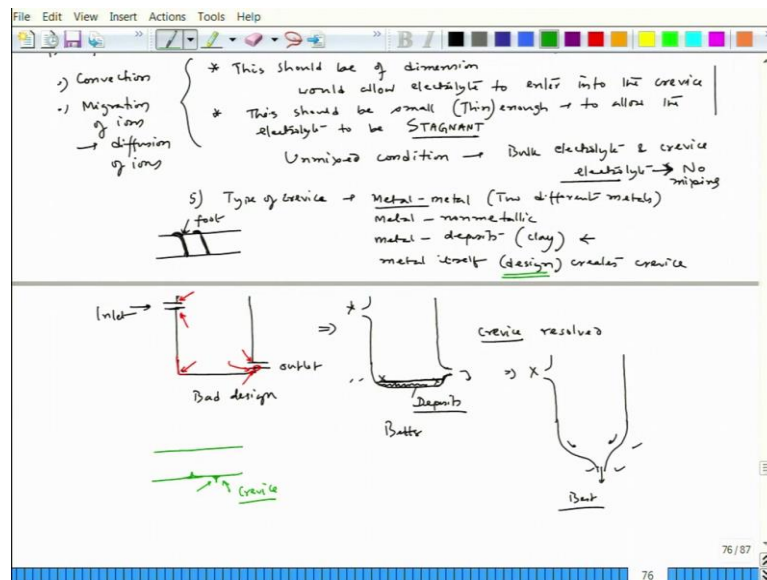 File Edit View Insert Actions Tools Help
.) Convection
.) Migration of ions
→ diffusion of ions
* This should be of dimension
would allow electrolyte to enter into the crevice
* This should be small (Thin) enough → to allow the
electrolyte to be STAGNANT
Unmixed condition → Bulk electrolyte & crevice
electrolyte → No mixing
5) Type of crevice → Metal-metal (Two different metals)
Metal - nonmetallic
metal - deposits (clay) ←
metal itself (design) creates crevice
foot
Inlet →
⇒
crevice resolved
outlet
⇒
Bad design
Deposits
Better
Crevice
Best
76 / 87
76